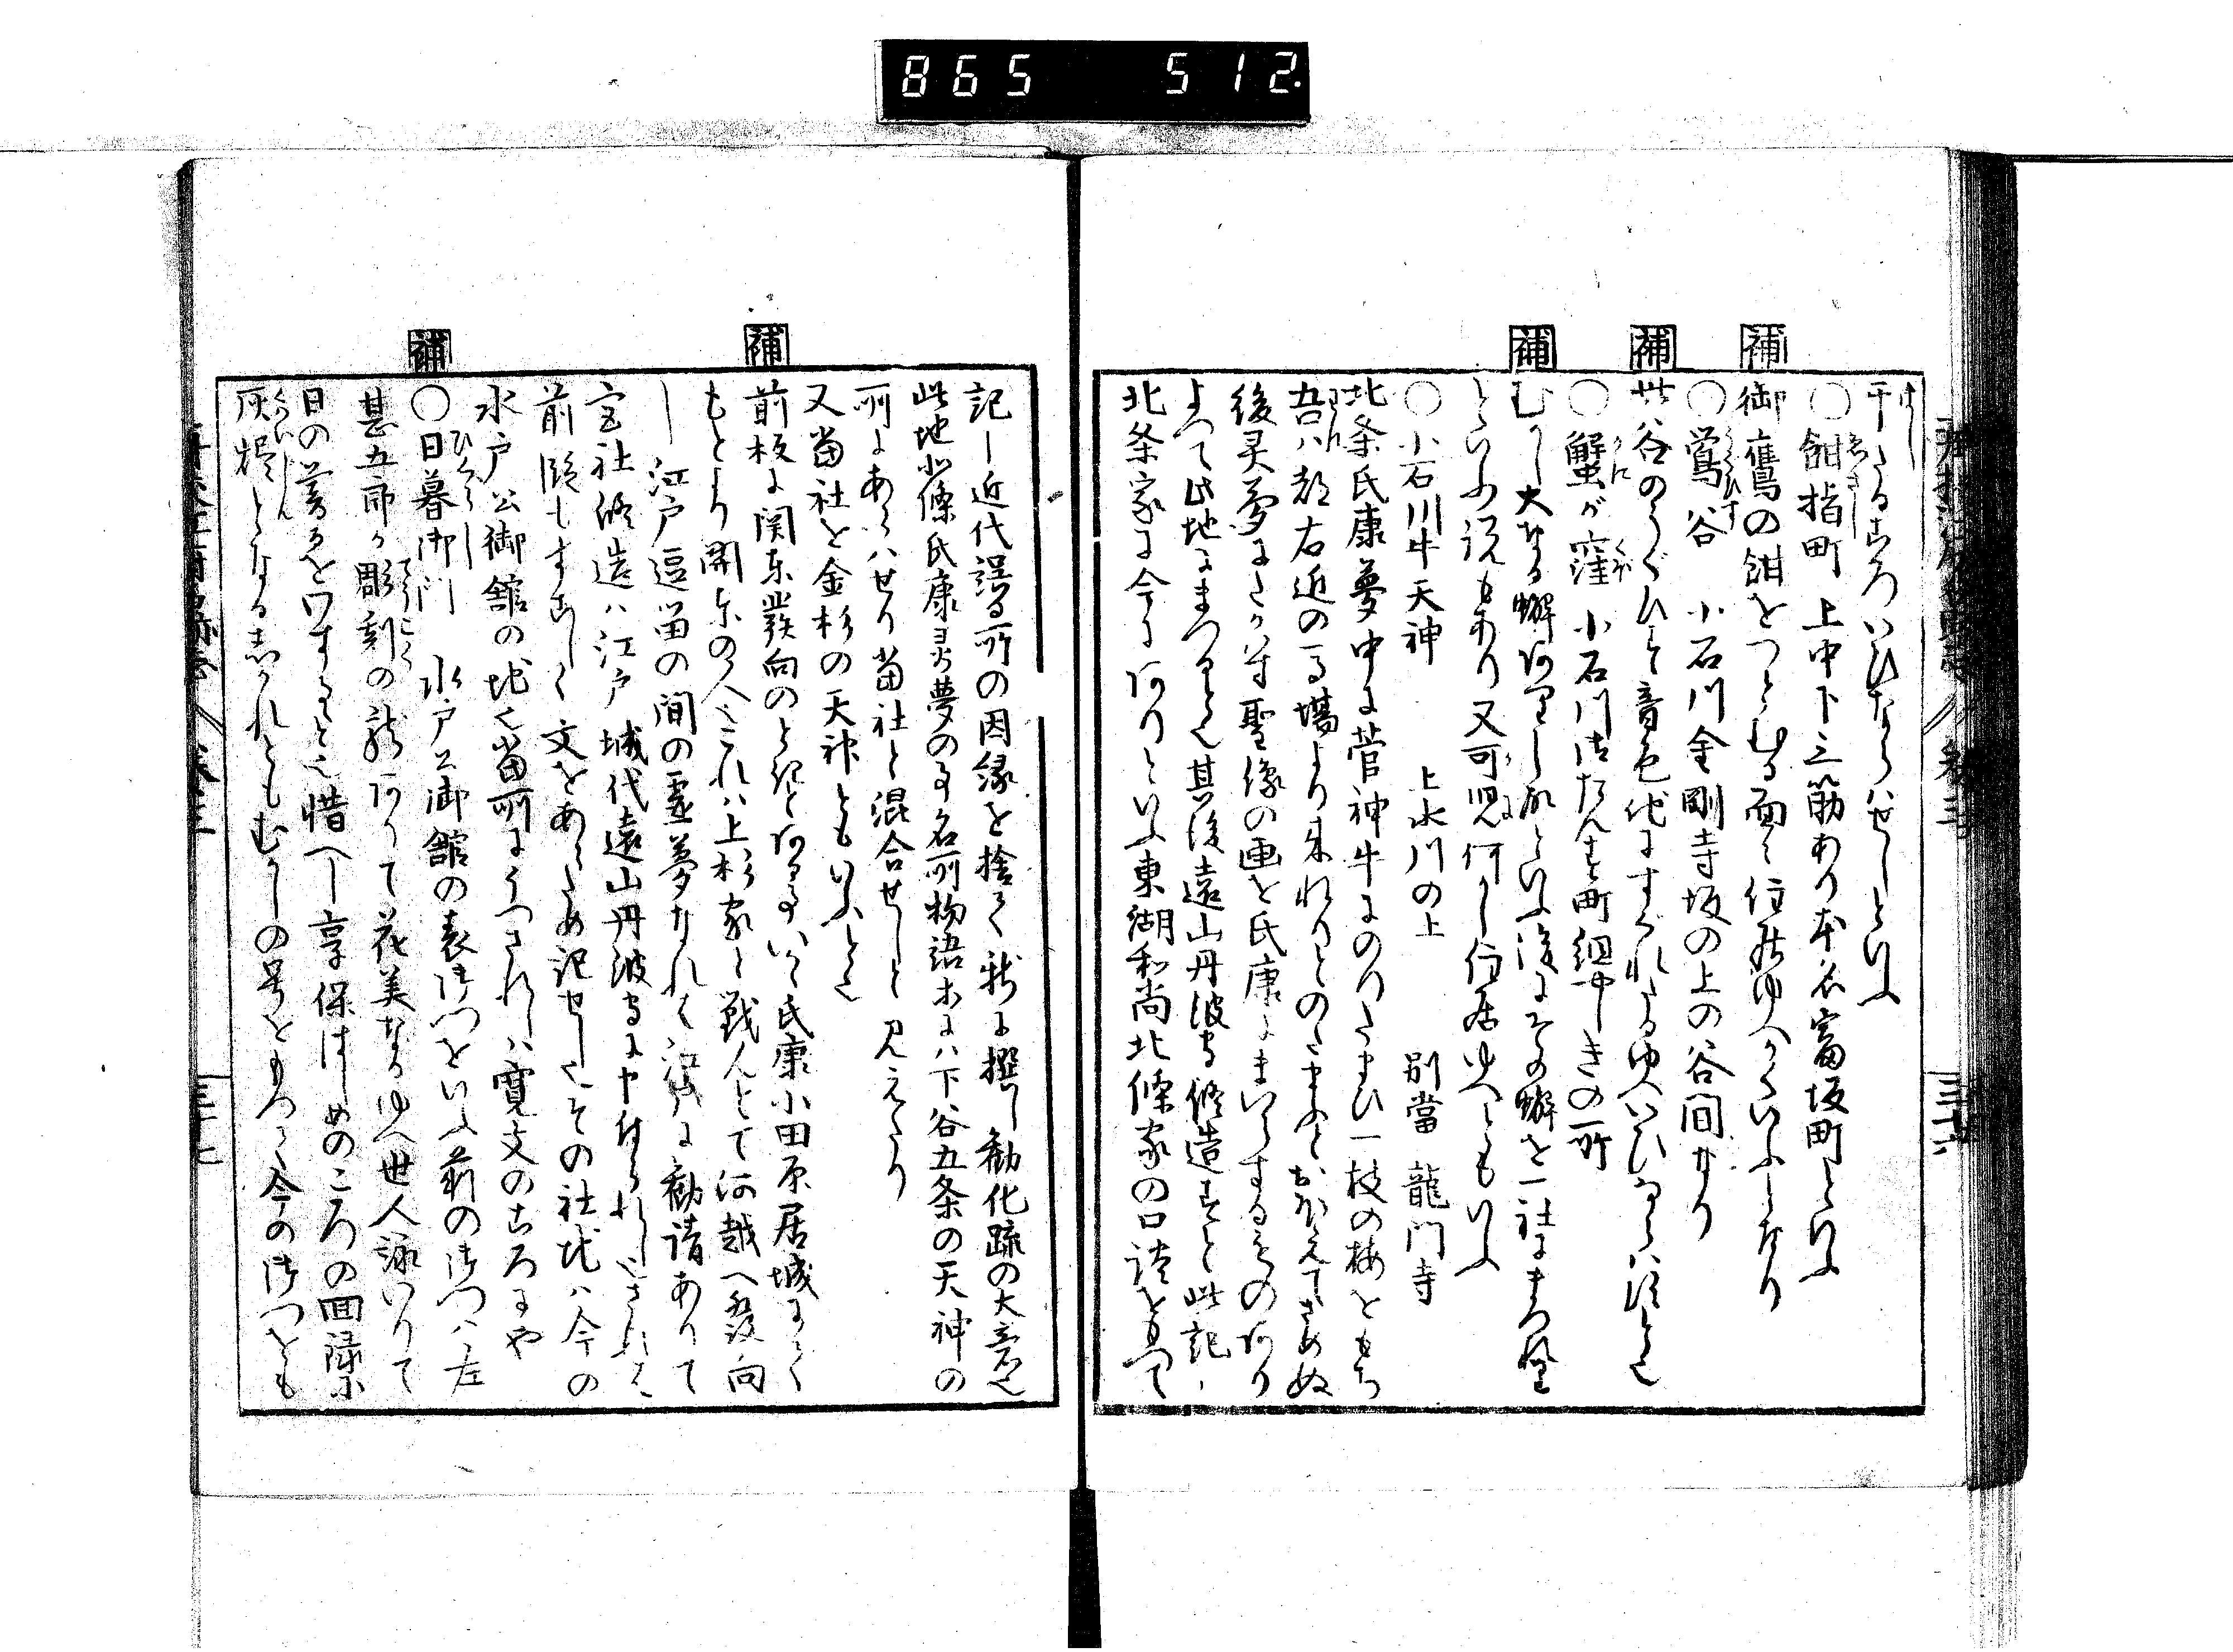 865 512.
干たるころいひならハせしといふ
○餌指町 上中下三筋あり本名富坂町といふ
補
御鷹の餌をつとむる面々住居ゆへかくいふとなり
○鶯谷 小石川金剛寺坂の上の谷間なり
補
此谷のうぐひす音色他にすぐれたるゆへいひならハすと也
○蟹が窪 小石川御たんす町組やしきの所
補
むかし大なる蠏ありし所といふ後にその蠏を一社にまつる
といふ説もあり又可児何かし住居ゆへともいふ
○小石川牛天神 上水川の上 別當 龍門寺
北条氏康夢中に菅神牛にのりたまひ一枝の梅をもち
吾ハ都右近の馬場より来れりとのたまふとおほえてさめぬ
後灵夢にたかハす聖像の画を氏康にまいらするものあり
よつて此地にまつると也其後遠山丹波守修造すと此記ハ
北条家に今にありといふ東湖和尚北條家の口説をもつて
三十六
記し近代誤る所の因縁を捨て新に撰し勧化疏の大意也
此地北條氏康灵夢の事名所物語等にハ下谷五条の天神の
所にあらハせり当社と混合せしと見えたり
又當社を金杉の天神ともいふと也
補
前板に関東發向のときとある事いかゝ氏康小田原居城にて
もとより関东の人也これハ上杉家と戦んとて河越へ發向
し江戸逗留の間の霊夢なれは江戸に勧請ありて
宮社修造ハ江戸城代遠山丹波守に申付られし也されは
前版もすこしく文をあらため記せし也その社地ハ今の
水戸公御舘の地也當所にうつされしハ寛文のころにや
補
○日暮御門 水戸公御舘の表御門をいふ前の御門ハ左
甚五郎が彫刻の龍ありて花美なるゆへ世人詠いりて
日の暮るをわするゝと也惜へし享保はしめのころの回禄に
灰燼となるしかれともむかしの号をもつて今の御門をも
三十七